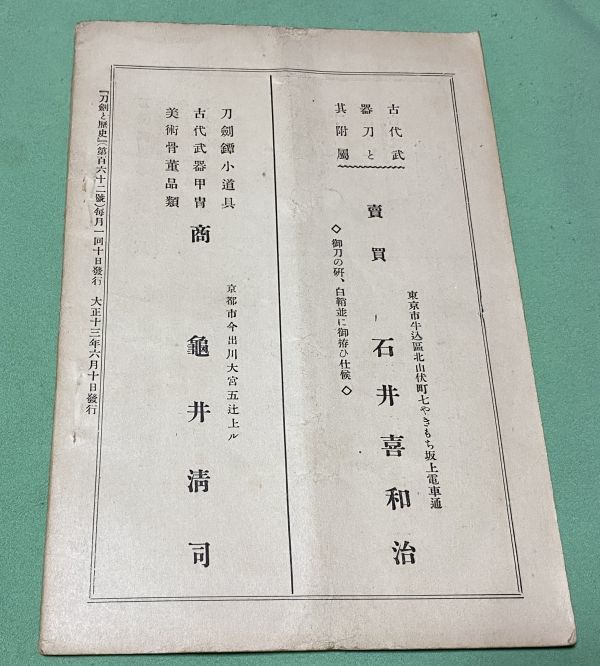 古代武
器刀と
其附屬
賣買
◇御刀の研、白鞘並に御拵ひ仕候◇
東京市牛込區北山伏町七やきもち坂上電車通
石井喜和治
刀劍鐔小道具
古代武器甲冑
美術骨董品類
商
京都市今出川大宮五辻上ル
龜井淸司
『刀劍と歷史』(第百六十二號)每月一回十日發行 大正十三年六月十日發行